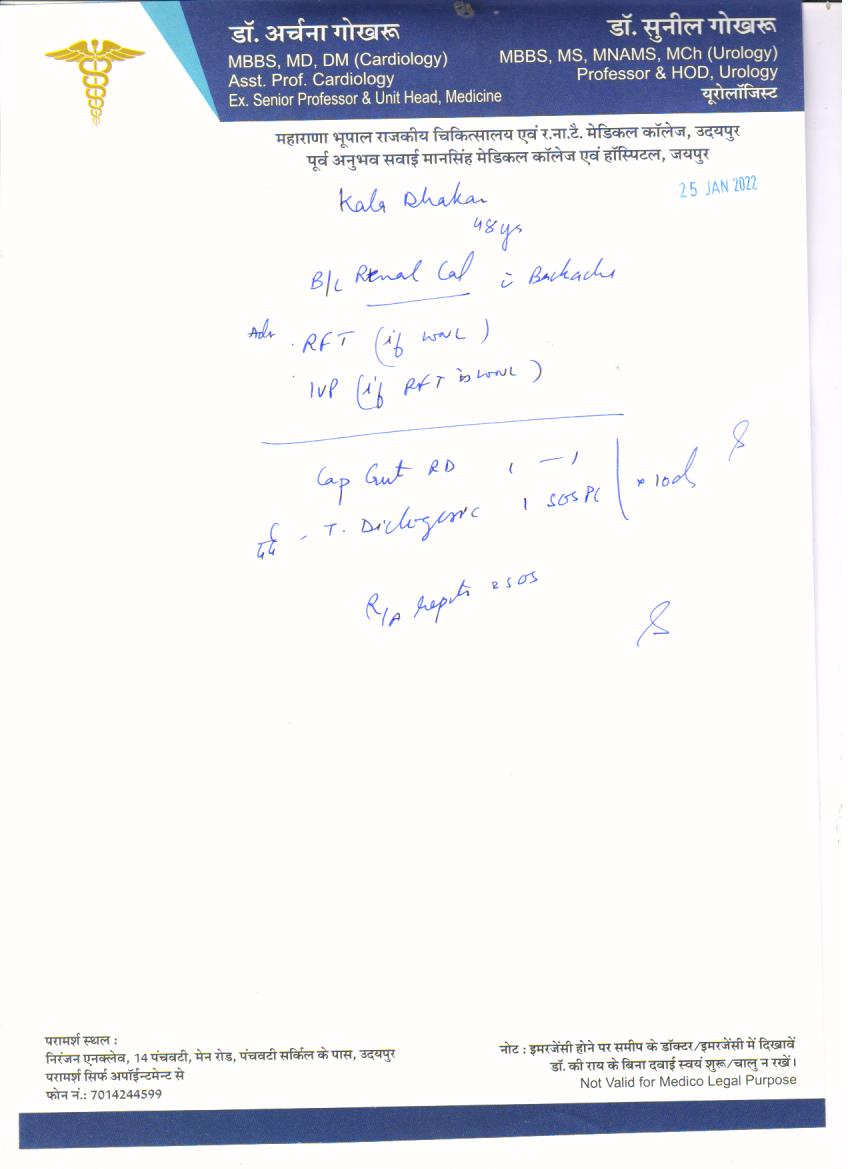 डॉ. अर्चना गोखरू
MBBS, MD, DM (Cardiology)
Asst. Prof. Cardiology
Ex. Senior Professor & Unit Head, Medicine
डॉ. सुनील गोखरू
MBBS, MS, MNAMS, MCh (Urology)
Professor & HOD, Urology
यूरोलॉजिस्ट
महाराणा भूपाल राजकीय चिकित्सालय एवं र.ना.टै. मेडिकल कॉलेज, उदयपुर
पूर्व अनुभव सवाई मानसिंह मेडिकल कॉलेज एवं हॉस्पिटल, जयपुर
25 JAN 2022
Kala Dhakar
48 ys
B/L Renal Cal c Backache
Adv . RFT (if WNL)
. IVP (if RFT is WNL)
Cap RD 1 — 1
T. 1 SOS PC
x 10d
R/A reports SOS
परामर्श स्थल :
निरंजन एनक्लेव, 14 पंचवटी, मेन रोड, पंचवटी सर्किल के पास, उदयपुर
परामर्श सिर्फ अपॉईन्टमेन्ट से
फोन नं.: 7014244599
नोट : इमरजेंसी होने पर समीप के डॉक्टर/इमरजेंसी में दिखावें
डॉ. की राय के बिना दवाई स्वयं शुरू/चालु न रखें।
Not Valid for Medico Legal Purpose